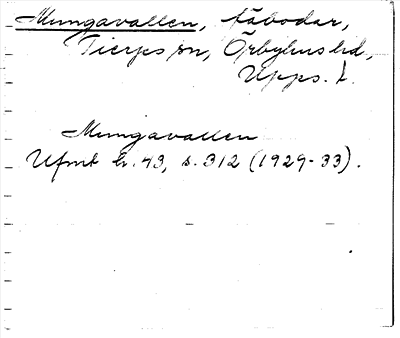 Mungavallen, fäbodar,
Tierps sn, Örbyhus hd,
Upps. l.
Mungavallen
Ufmt h. 43, s. 312 (1929-33).